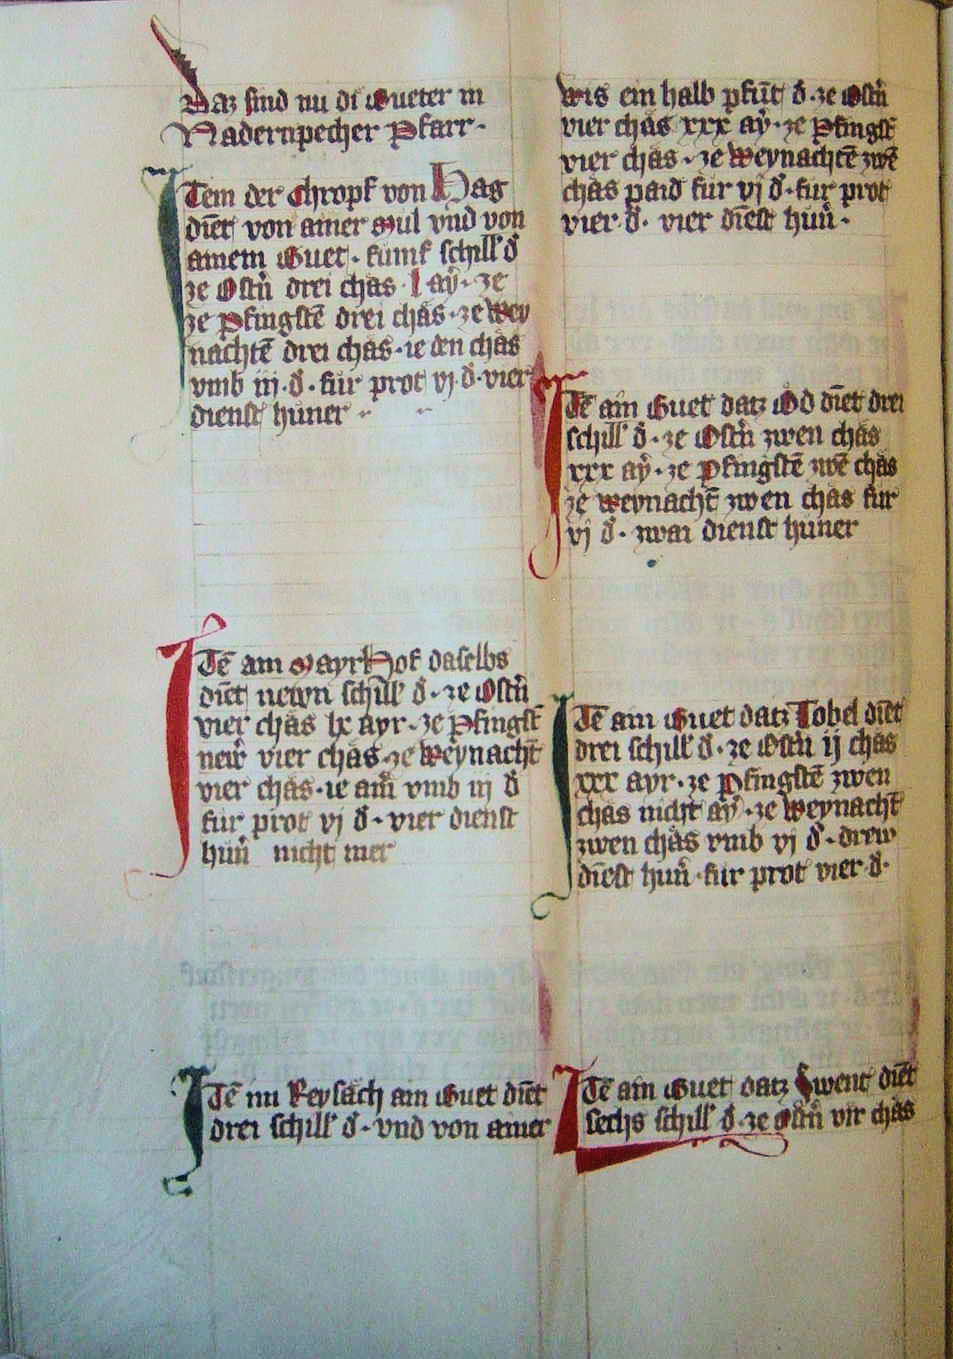 Daz sind nu di Gueter in
Nadernpecher Pfarr·
Item der Chropf von Hag
diēt von ainer Mul vnd von
ainem Guet · fumf schill d̄
ze Ostn̄ drei chas · l aÿ · ze
ze Pfingstē drei chas · ze Wey
nachtē drei chas · ie ain chas
vmb iij · d̄ · fur prot vj · d̄ · vier
dienst huner
Itē ain Mayrhof daselbs
diēt newn schill d̄ · ze Ostn̄
vier chas lx ayr · ze Pfingst̄
new̄ vier chas · ze Weynacht̄
vier chas · ie ain̄ vmb iij d̄
fur prot vj d̄ · vier dienst
hun̄ nicht mer
Itē im Reysach ain Guet diēt
drei schill d̄ · vnd von ainer
wis ein halb pfūt d̄ · ze Ostn̄
vier chas xxx aÿ · ze Pfingst̄
vier chas · ze Weynachtē zwē
chas paid fur vj d̄ · fur prot
vier · d̄ · vier diēst hun̄ ·
Itē ain Guet datz Od diēt drei
schill d̄ · ze Ostn̄ zwen chas
xxx aÿ · ze Pfingstē zwē chas
ze Weynacht̄ zwen chas fur
vj d̄ · zwai dienst huner
Itē ain Guet datz Tobel diēt
drei schill d̄ · ze Ostn̄ ij chas
xxx ayr · ze Pfingstē zwen
chas nicht aÿ · ze Weynacht̄
zwen chas vmb vj d̄ · drew
diēst hun̄ · fur prot vier · d̄ ·
Itē ain Guet datz Swent diēt
sechs schill d̄ · ze Ostn̄ vir chas